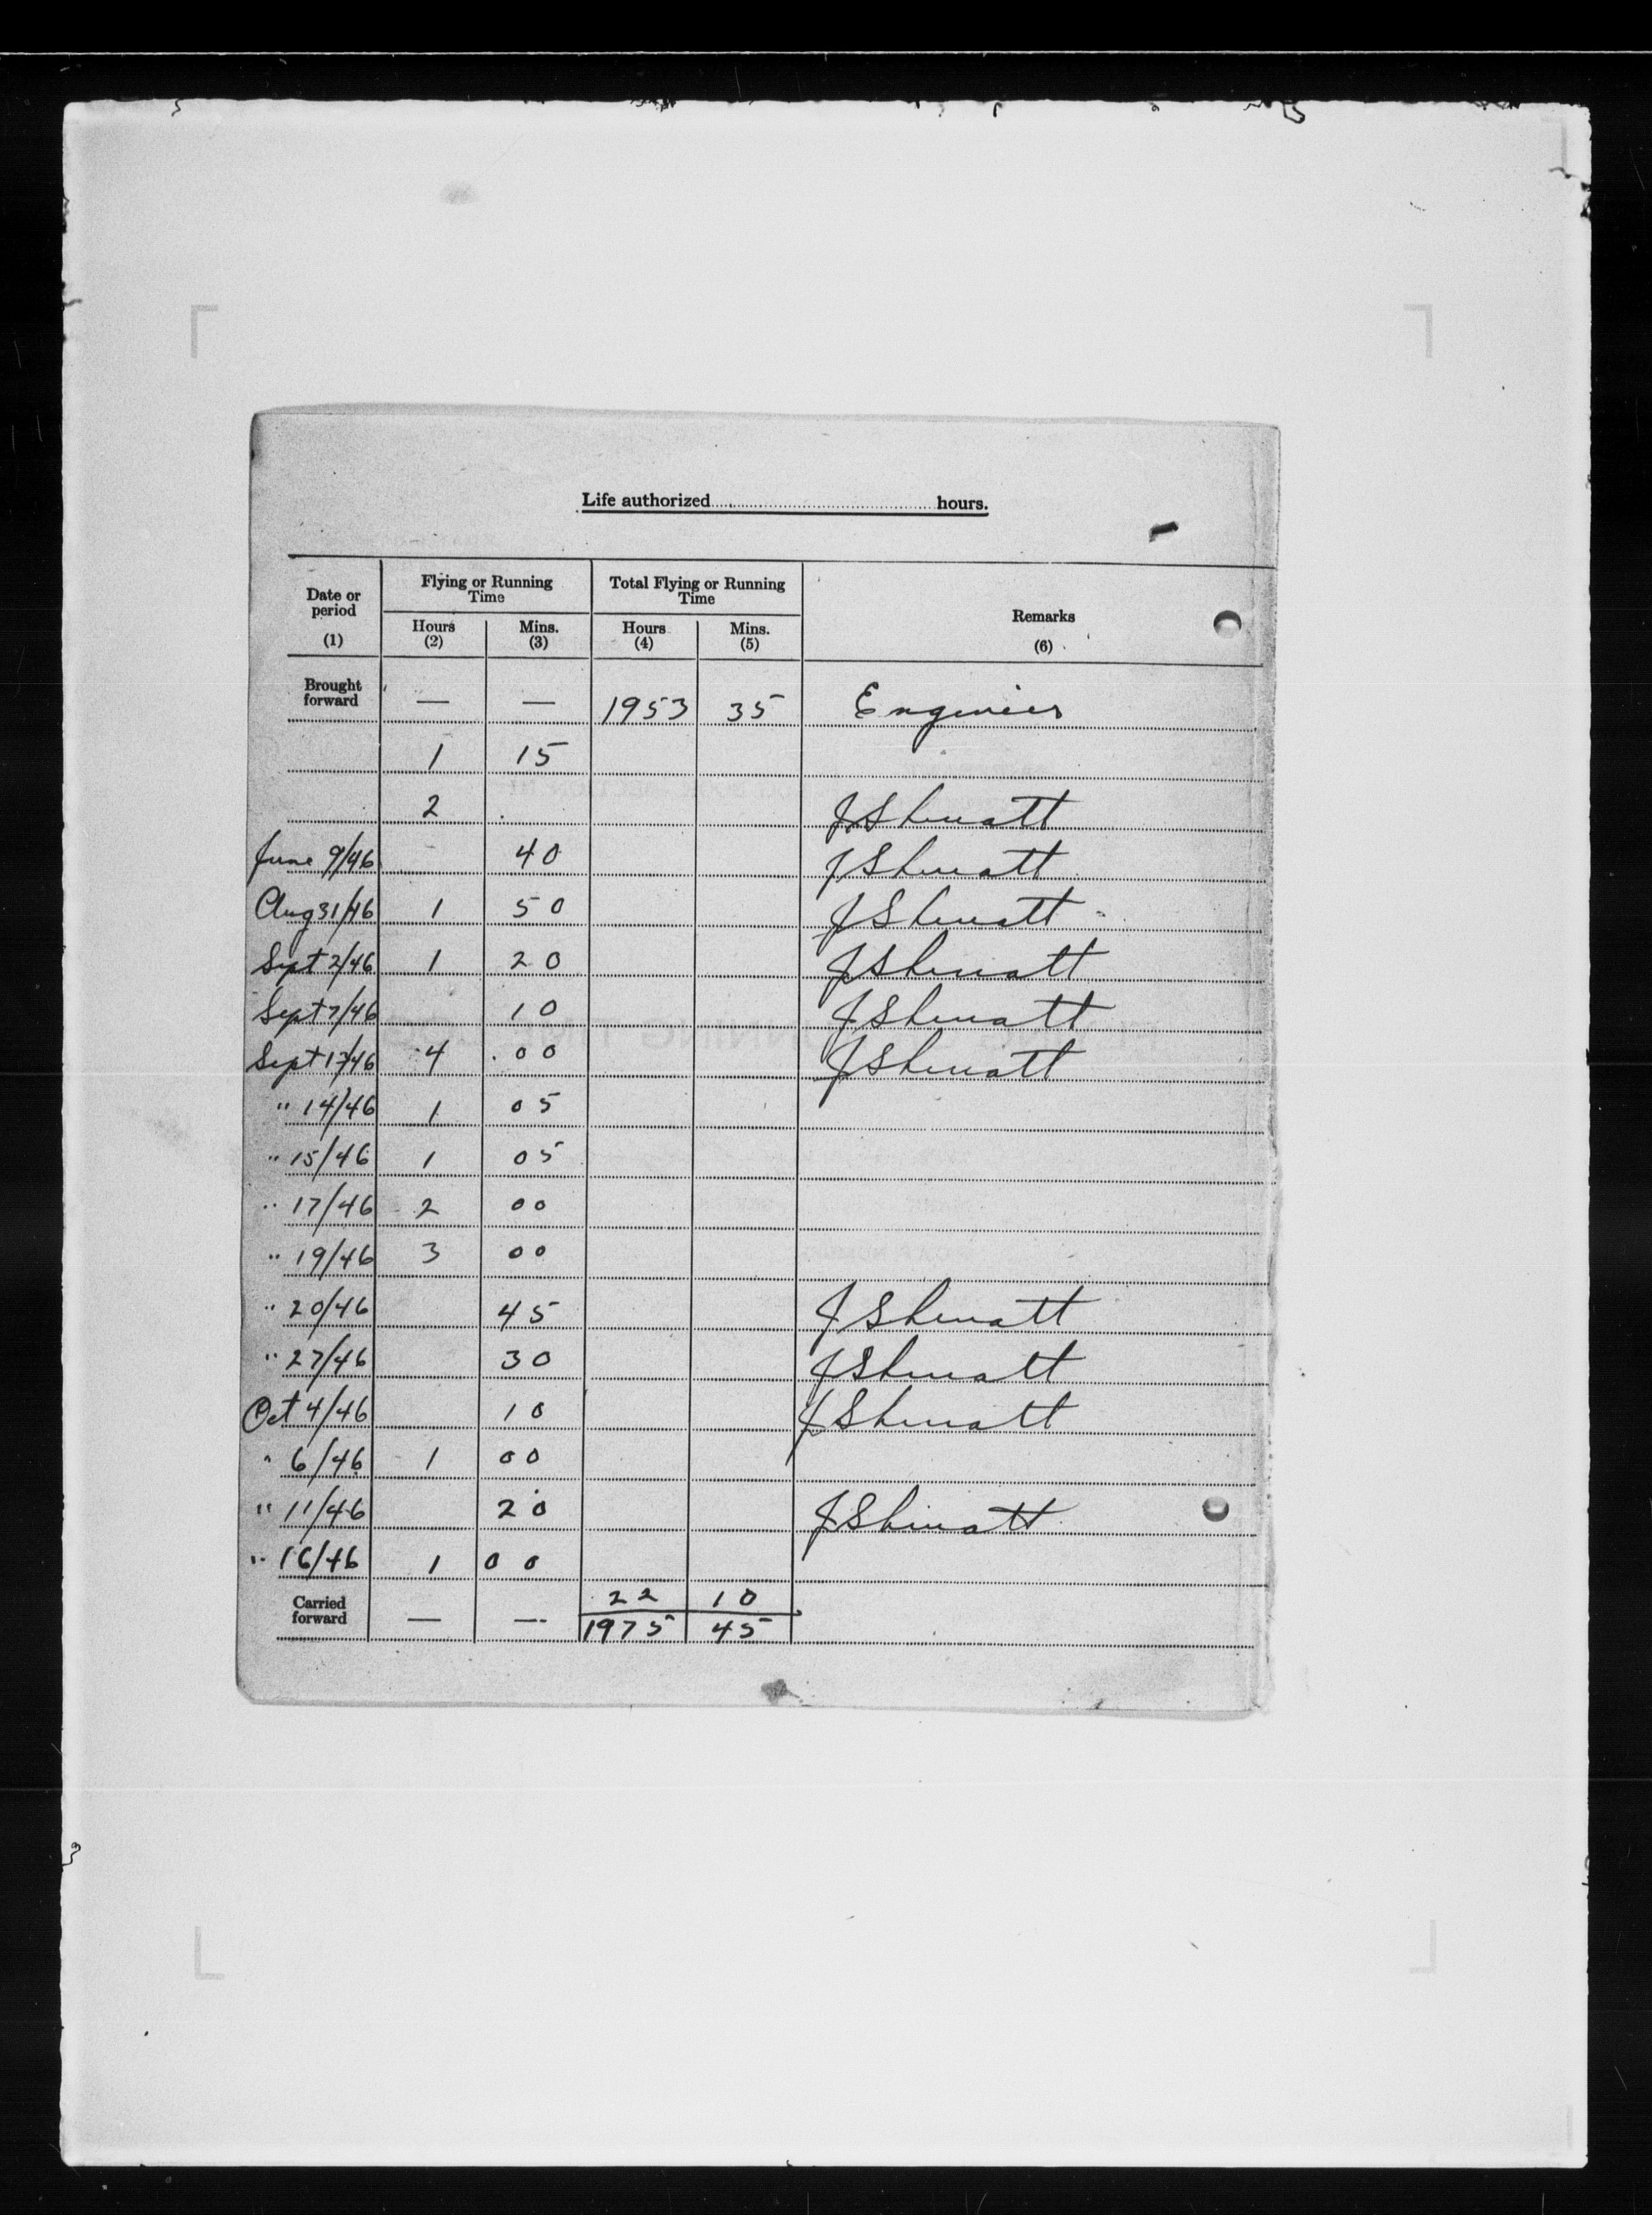 Life authorized.......... hours.
Date or period (1) Flying or Running Time Hours (2) Mins. (3) Total Flying or Running Time Hours (4) Mins. (5) Remarks (6)
Brought forward — — 1953 35 Engineer
1 15
2
June 9/46 40
Aug 31/46 1 50
Sept 2/46 1 20
Sept 7/46 10
Sept 17/46 4 00
" 14/46 1 05
" 15/46 1 05
" 17/46 2 00
" 19/46 3 00
" 20/46 45
" 27/46 30
Oct 4/46 10
" 6/46 1 00
" 11/46 20
" 16/46 1 00
22 10
Carried forward — — 1975 45